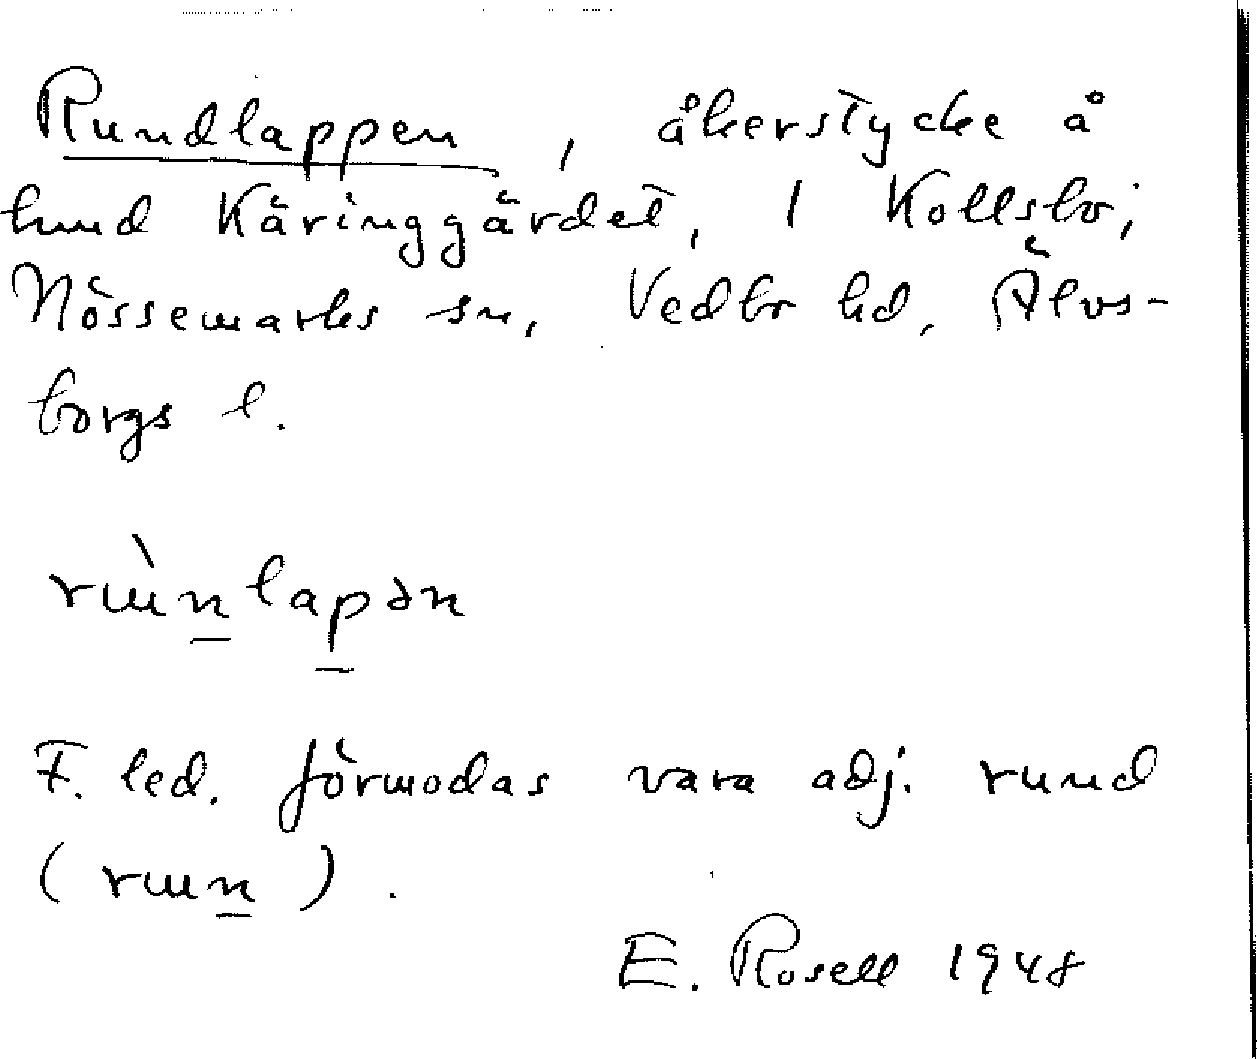 Rundlappen, åkerstycke å
hmd Käringgärdet, 1 Kollsbo;
Nössemarks sn, Vedbo hd, Älvs-
borgs l.
lapən
F. led. förmodas vara adj. rund
E. Rosell 1948